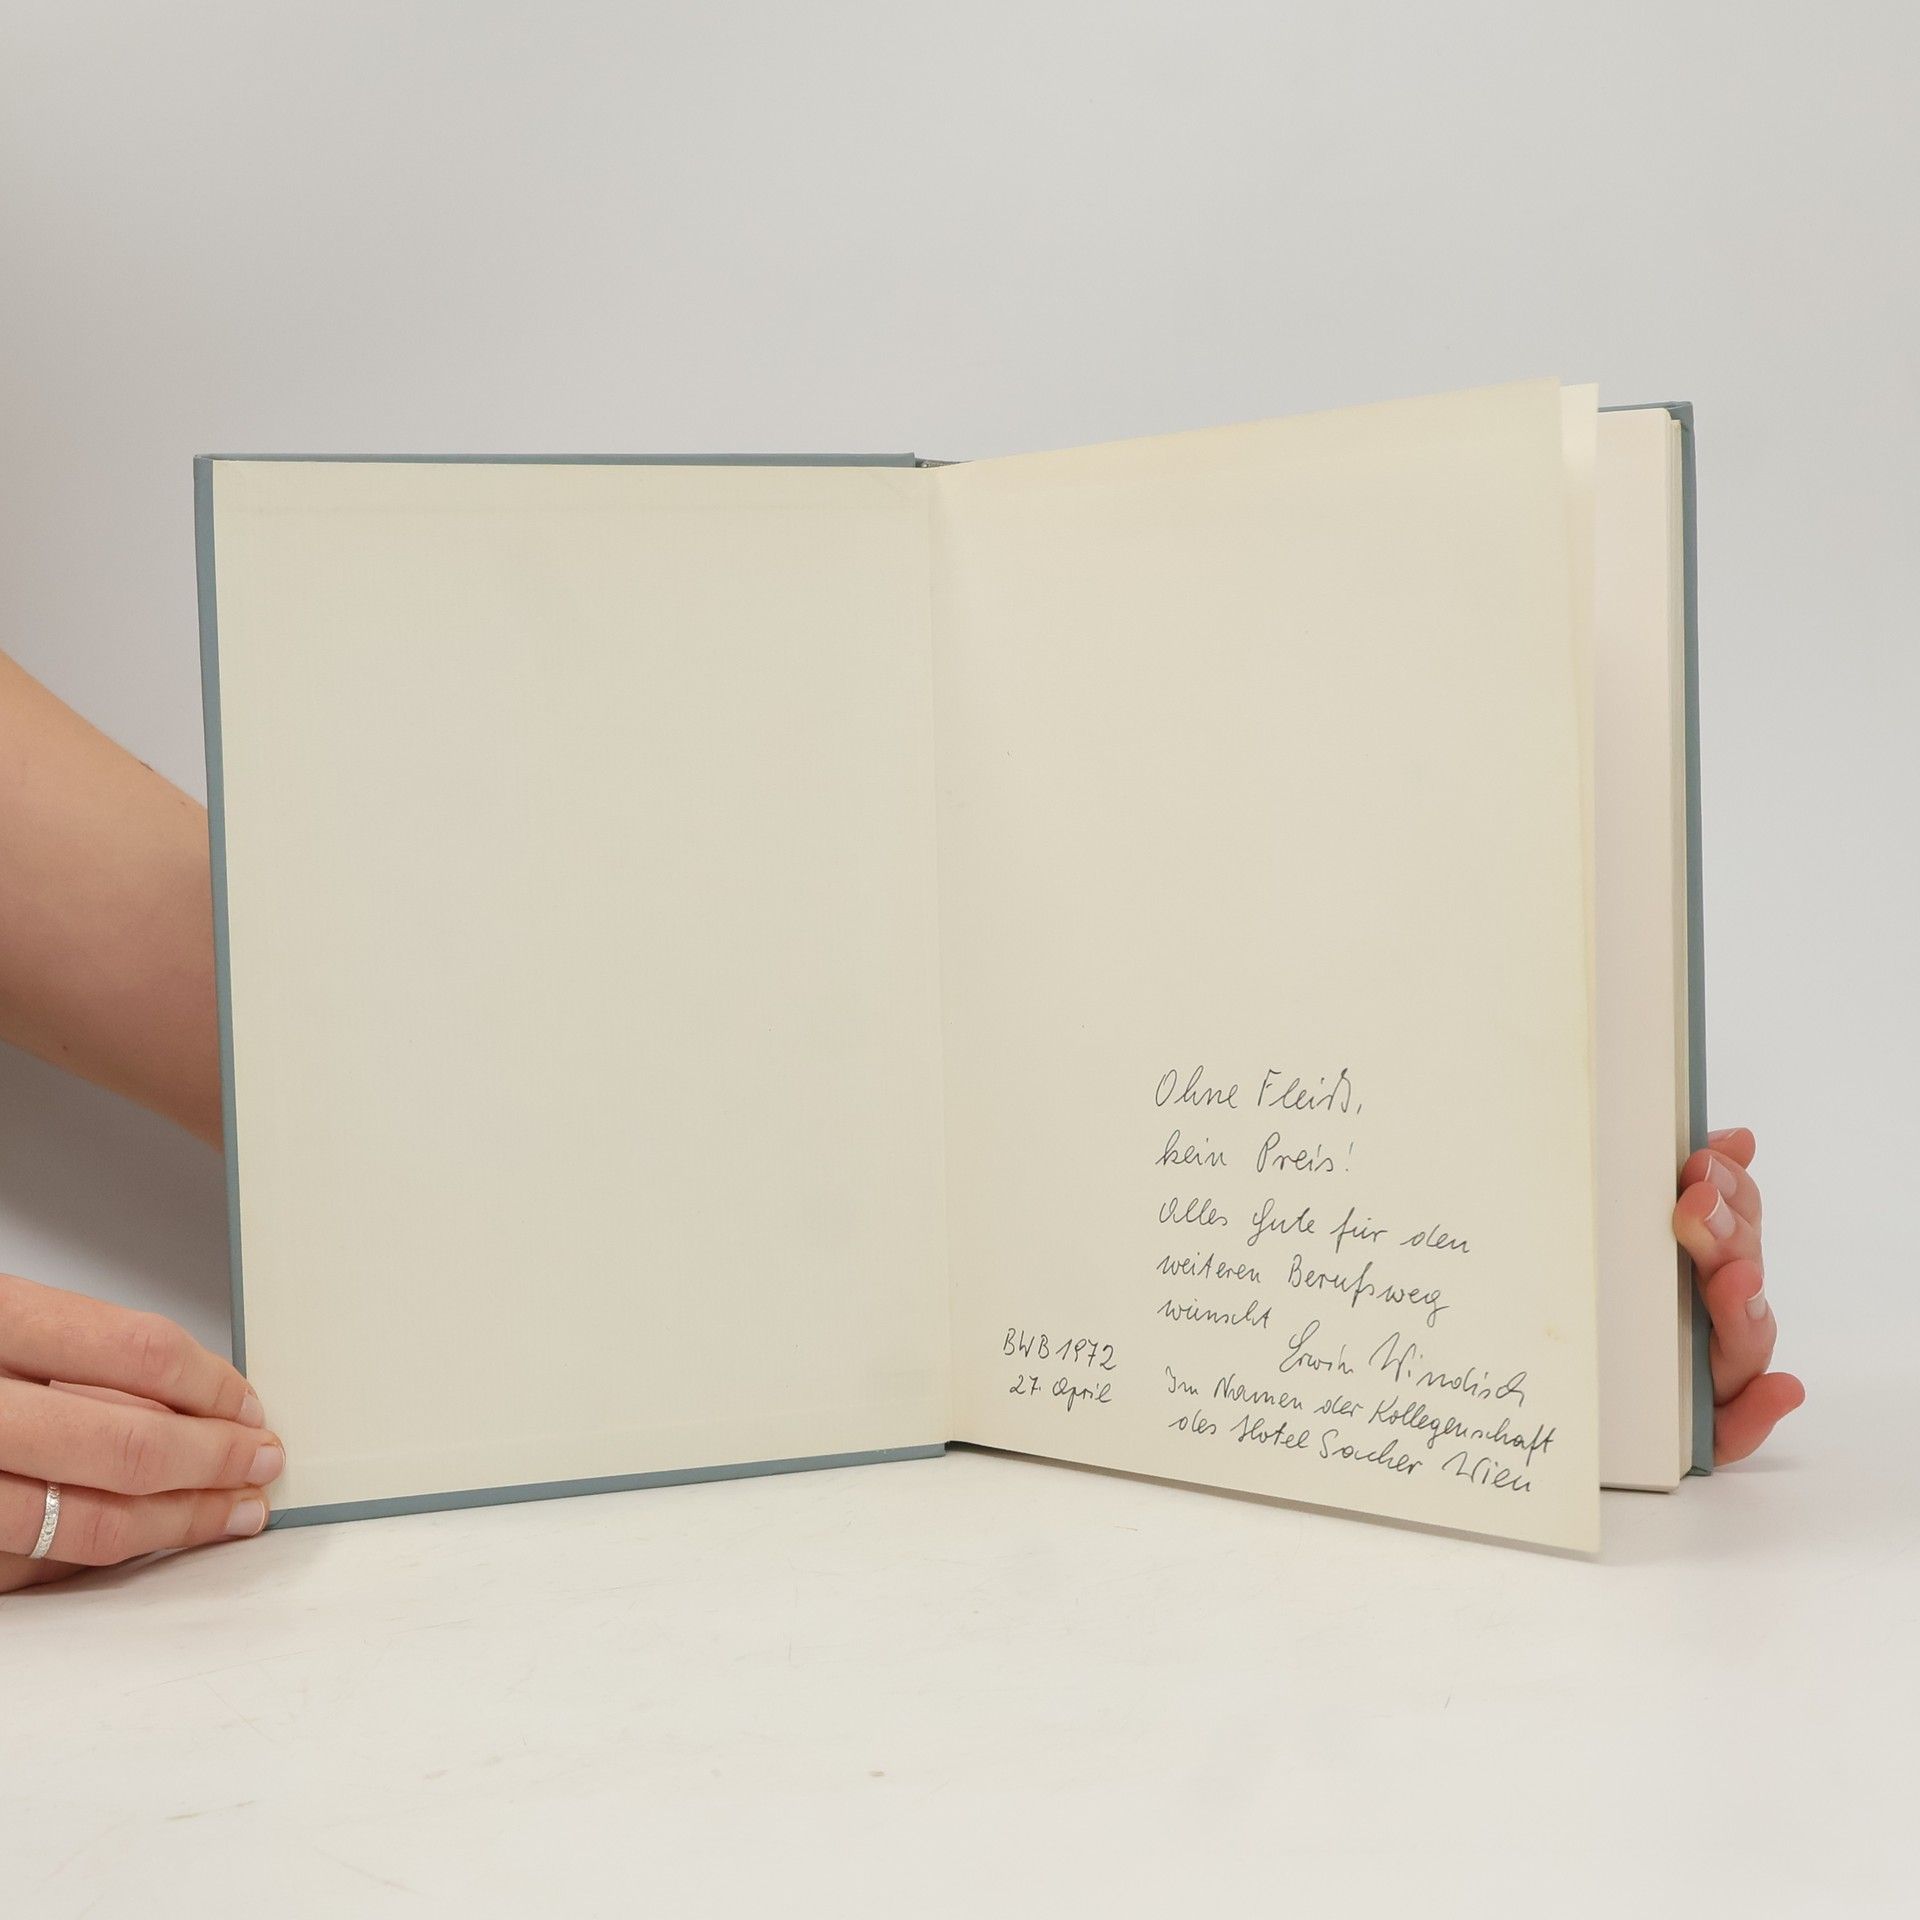 Ohne Fleiß,
kein Preis!
Alles Gute für den
weiteren Berufsweg
wünscht
Erwin Windisch
Im Namen der Kollegenschaft
des Hotel Sacher Wien
BWB 1972
27. April